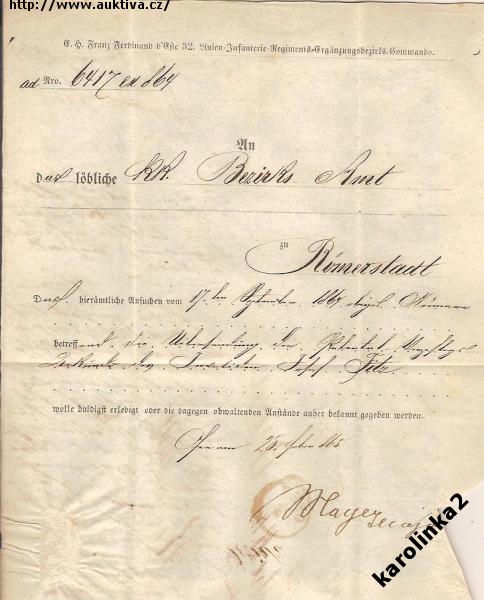 http://www.auktiva.cz/
E. H. Franz Ferdinand d'Este 32. Linien-Infanterie-Regiments-Ergänzungsbezirks-Commando.
ad Nro. 6417 ex 864
An
das löbliche KK. Bezirks Amt
zu
Römerstadt
Das hierämtliche Ansuchen vom 17. September 1864
betreffend die Uebersendung der Patental
des Invaliden Josef
wolle baldigst erledigt oder die dagegen obwaltenden Anstände anher bekannt gegeben werden.
25. 865
Mayer
karolinka2